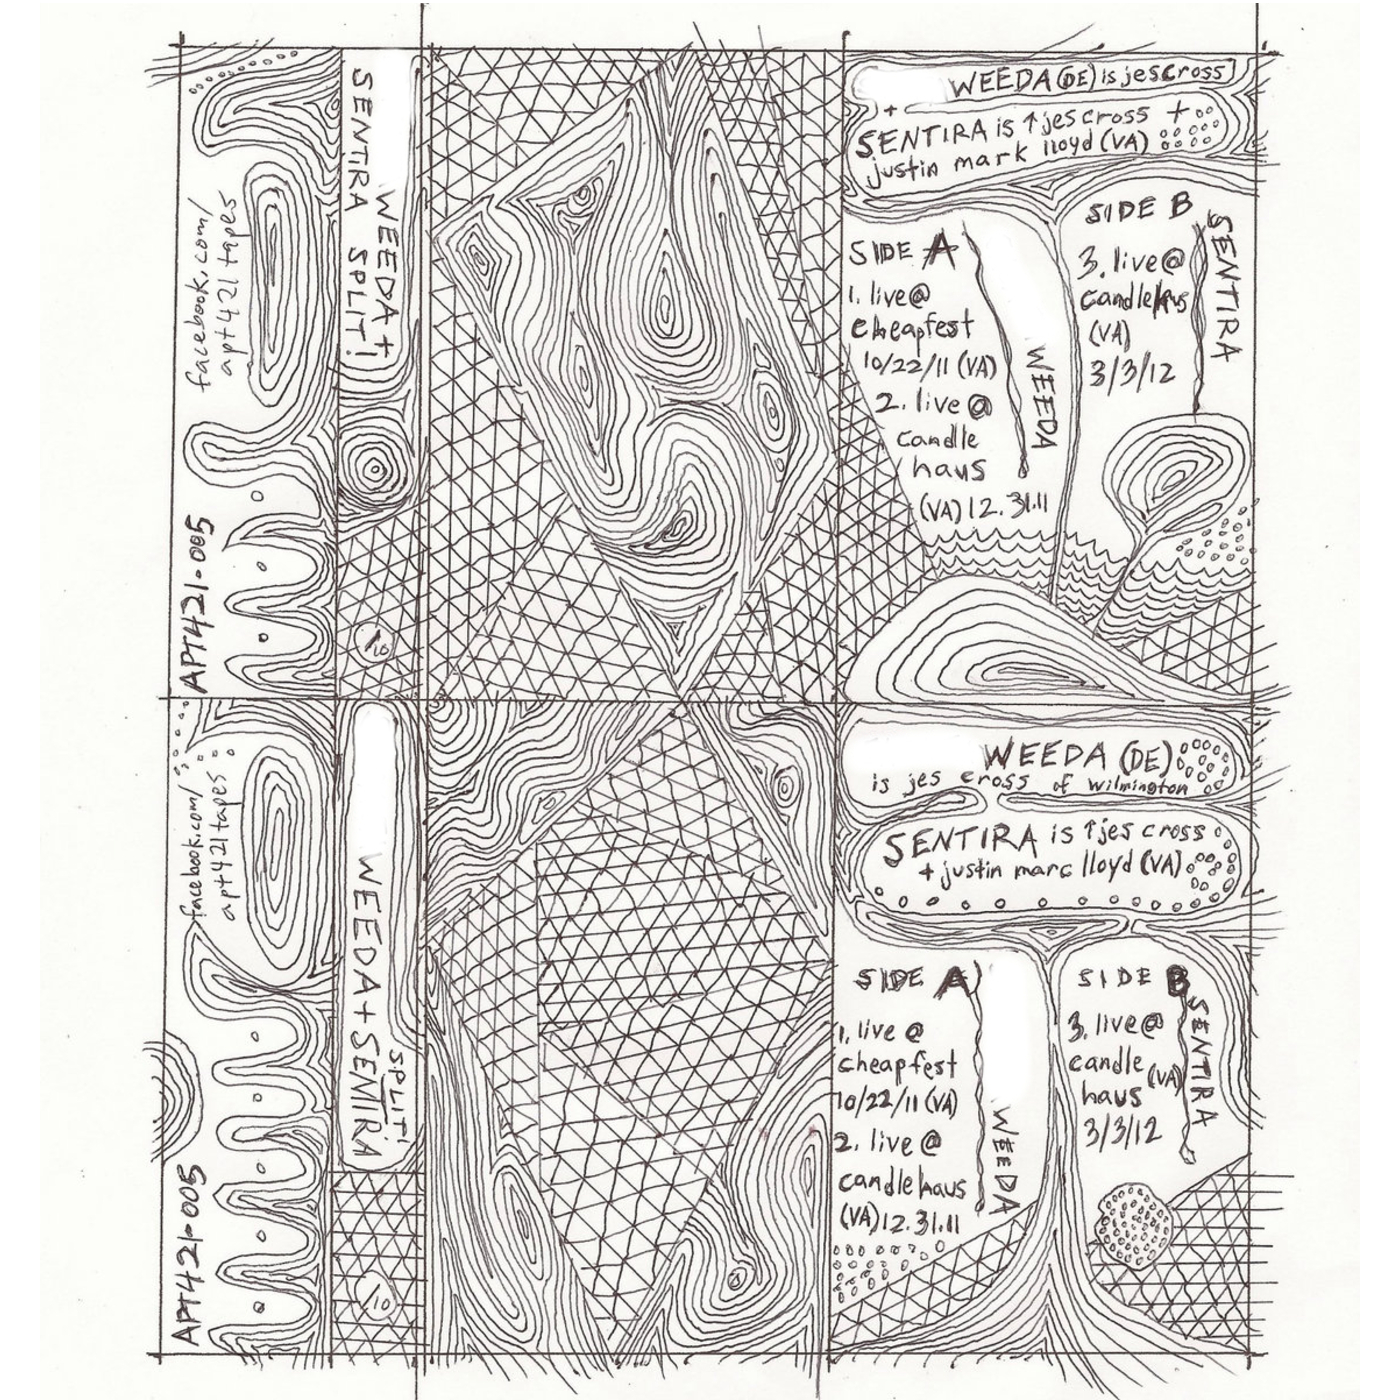 facebook.com/
apt421 tapes
APT421.005
WEEDA +
SENTIRA SPLIT!
/10
WEEDA (DE) is jes cross
+
SENTIRA is ↑ jes cross +
justin mark lloyd (VA)
SIDE A
WEEDA
1. live @
cheapfest
10/22/11 (VA)
2. live @
candle
haus
(VA) 12.31.11
SIDE B
SENTIRA
3. live @
candlehaus
(VA)
3/3/12
facebook.com/
apt421tapes
APT421.005
WEEDA + SENTIRA
SPLIT!
/10
WEEDA (DE)
is jes cross of wilmington
SENTIRA is ↑ jes cross
+ justin marc lloyd (VA)
SIDE A
WEEDA
1. live @
cheapfest
10/22/11 (VA)
2. live @
candlehaus
(VA) 12.31.11
SIDE B
SENTIRA
3. live @
candle (VA)
haus
3/3/12